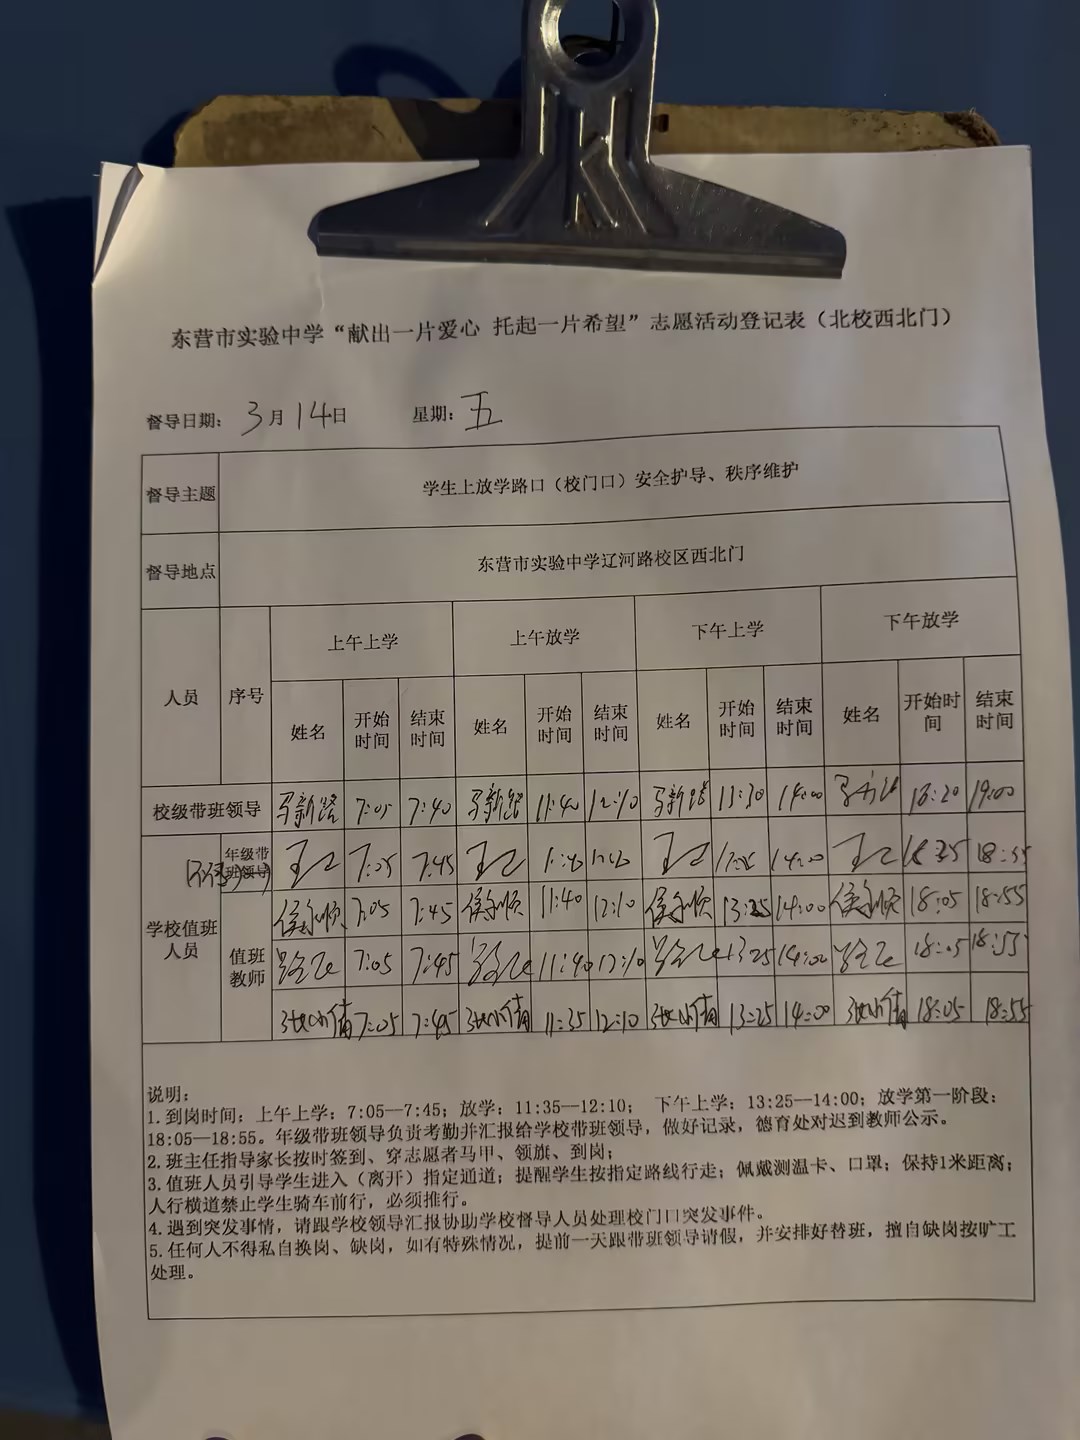 东营市实验中学“献出一片爱心 托起一片希望”志愿活动登记表（北校西北门）
督导日期: 3月14日 星期: 五
督导主题 学生上放学路口（校门口）安全护导、秩序维护
督导地点 东营市实验中学辽河路校区西北门
人员 序号 上午上学 上午放学 下午上学 下午放学
姓名 开始时间 结束时间 姓名 开始时间 结束时间 姓名 开始时间 结束时间 姓名 开始时间 结束时间
校级带班领导 马新路 7:05 7:40 马新路 11:40 12:10 马新路 13:30 14:00 19:00
学校值班人员 年级带班领导 7:05 7:45 14:00
值班教师 侯永顺 7:05 7:45 侯永顺 11:40 12:10 侯永顺 13:25 14:00 侯永顺 18:05 18:55
7:05 7:45 11:40 12:10 13:25 14:00 18:05 18:55
7:05 7:45 11:35 12:10 13:25 14:00 18:05 18:55
说明:
1. 到岗时间: 上午上学: 7:05—7:45; 放学: 11:35—12:10; 下午上学: 13:25—14:00; 放学第一阶段:
18:05—18:55。年级带班领导负责考勤并汇报给学校带班领导，做好记录，德育处对迟到教师公示。
2. 班主任指导家长按时签到、穿志愿者马甲、领旗、到岗;
3. 值班人员引导学生进入（离开）指定通道; 提醒学生按指定路线行走; 佩戴测温卡、口罩; 保持1米距离;
人行横道禁止学生骑车前行，必须推行。
4. 遇到突发事情，请跟学校领导汇报协助学校督导人员处理校门口突发事件。
5. 任何人不得私自换岗、缺岗，如有特殊情况，提前一天跟带班领导请假，并安排好替班，擅自缺岗按旷工
处理。